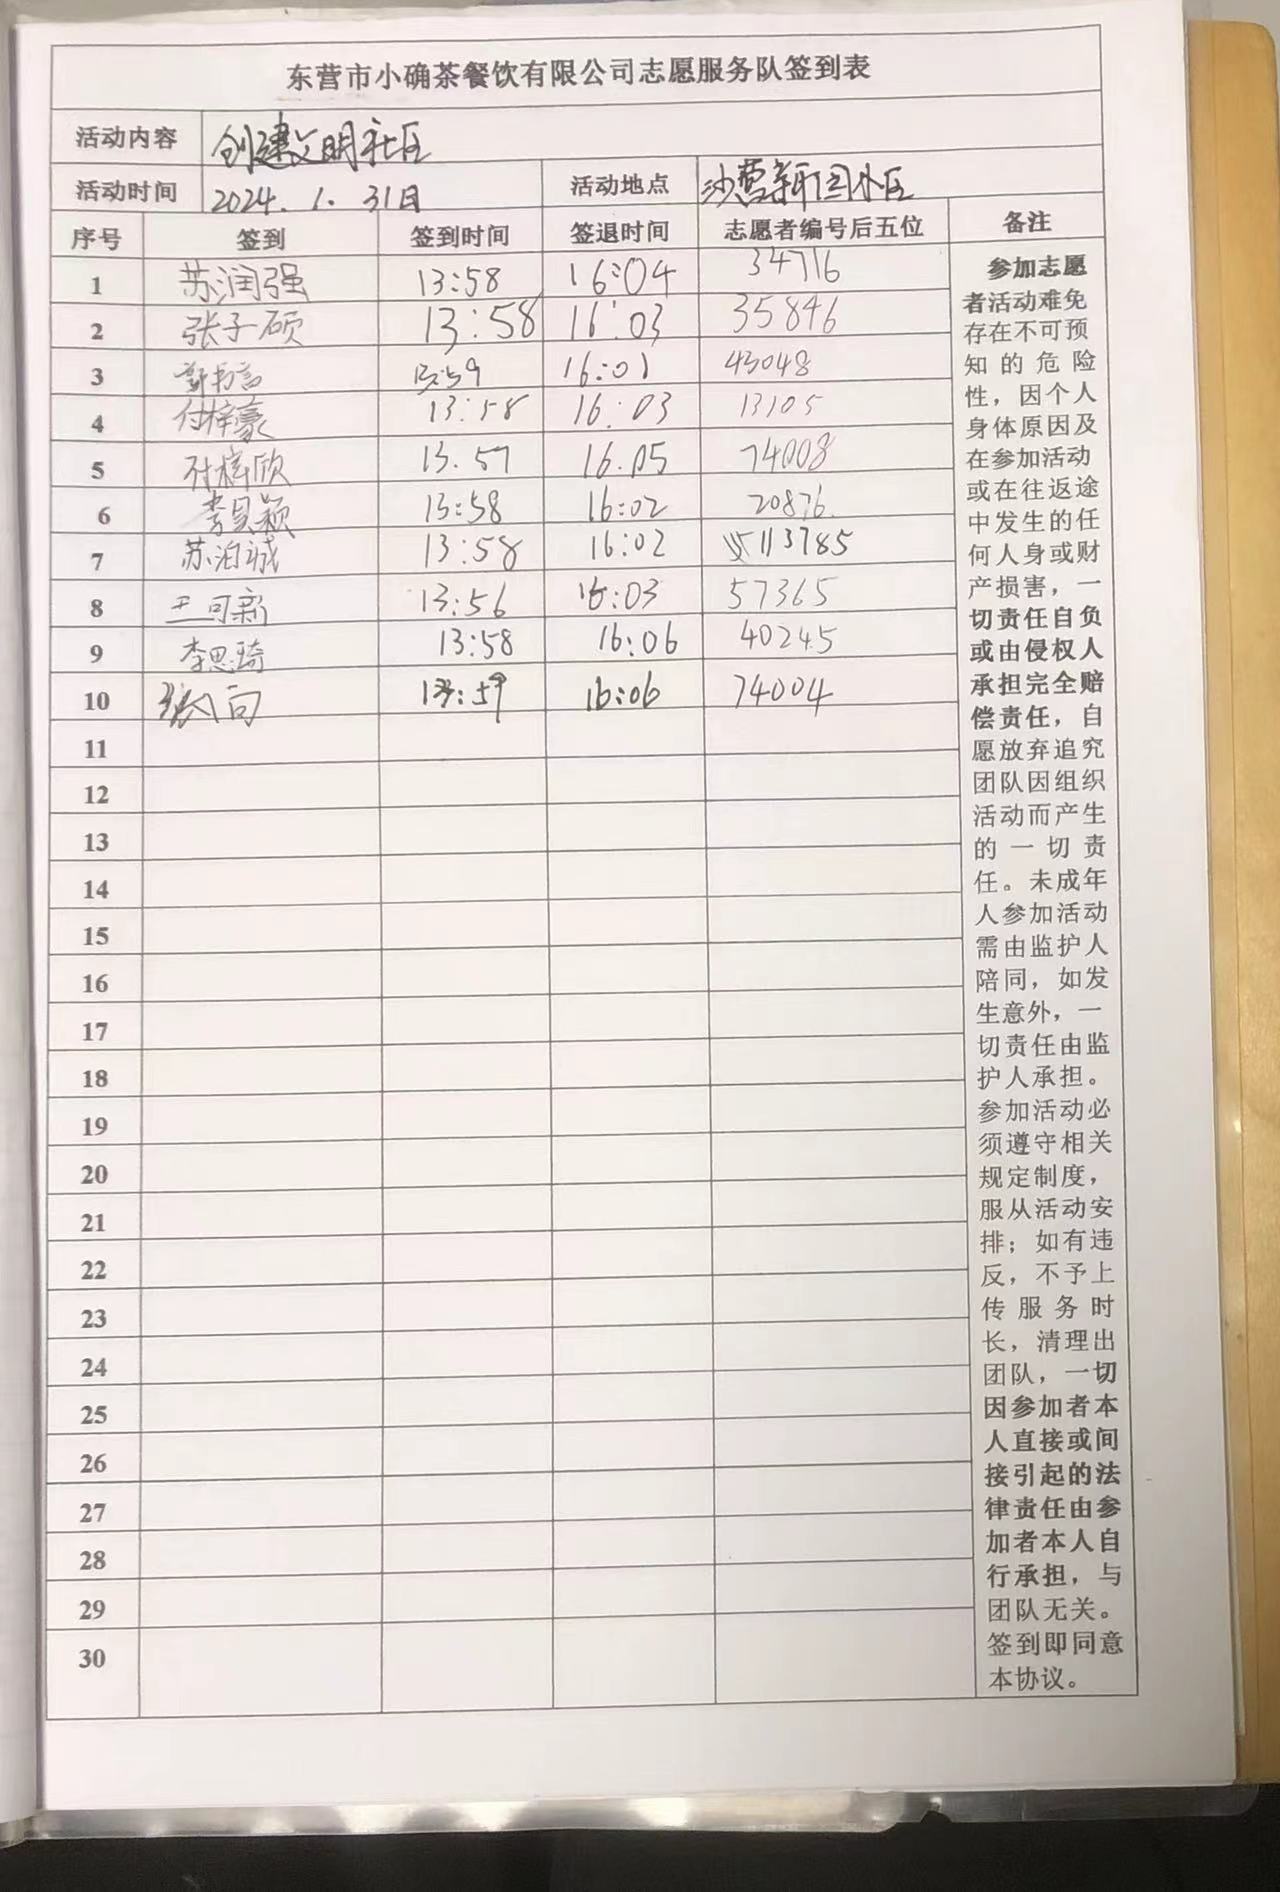 东营市小确茶餐饮有限公司志愿服务队签到表
活动内容 创建文明社区
活动时间 2024.1.31日 活动地点 沙营新园小区
序号 签到 签到时间 签退时间 志愿者编号后五位 备注
1 苏润强 13:58 16:04 34716
2 张子硕 13:58 16:03 35846
3 13:59 16:01 43048
4 付梓豪 13:58 16:03 13105
5 付梓欣 13.57 16.05 74008
6 李昊颖 13:58 16:02 20876
7 苏泊诚 13:58 16:02 13785
8 王可新 13:56 16:03 57365
9 李思琦 13:58 16:06 40245
10 13:59 16:06 74004
11
12
13
14
15
16
17
18
19
20
21
22
23
24
25
26
27
28
29
30
参加志愿
者活动难免
存在不可预
知的危险
性，因个人
身体原因及
在参加活动
或在往返途
中发生的任
何人身或财
产损害，一
切责任自负
或由侵权人
承担完全赔
偿责任，自
愿放弃追究
团队因组织
活动而产生
的一切责
任。未成年
人参加活动
需由监护人
陪同，如发
生意外，一
切责任由监
护人承担。
参加活动必
须遵守相关
规定制度，
服从活动安
排；如有违
反，不予上
传服务时
长，清理出
团队，一切
因参加者本
人直接或间
接引起的法
律责任由参
加者本人自
行承担，与
团队无关。
签到即同意
本协议。